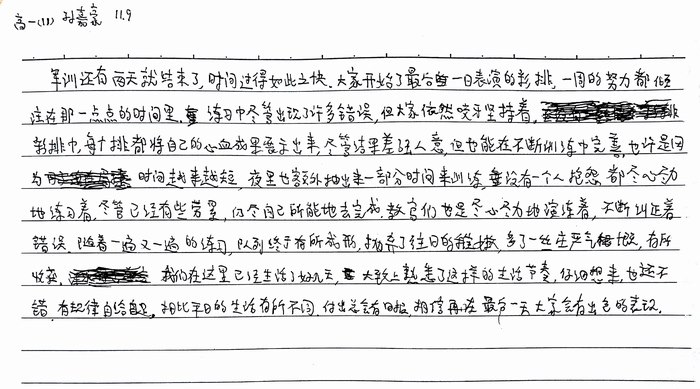 高一(11) 孙嘉豪 11.9
军训还有两天就结束了,时间过得如此之快。大家开始了最后一日表演的彩排,一周的努力都倾
注在那一点点的时间里。练习中尽管出现了许多错误,但大家依然咬牙坚持着,
彩排中,每个排都将自己的心血成果展示出来,尽管结果差强人意,但也能在不断训练中完善,也许是因
为时间越来越短,夜里也额外抽出来一部分时间来训练,没有一个人抱怨,都尽心尽力
地练习着,尽管已经有些劳累,仍尽自己所能地去完成,教官们也是尽心尽力地演练着,不断纠正着
错误。随着一遍又一遍的练习,队列终于有所成形,抛弃了往日的,多了一丝庄严气概,有所
收获。我们在这里已经生活了好几天,大致上熟悉了这样的生活节奏,仔细想来,也还不
错,有规律自给自足,相比平日的生活有所不同,付出总会有回报,相信再在最后一天大家会有出色的表现。